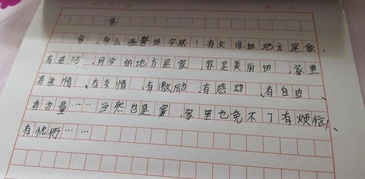 家
家,多么温馨的字眼!有父母的地方是家,
有老师、同学的地方是家,家是美丽的,家里
有亲情、有友情、有激励、有感动、有自由、
有力量……当然也是家,家里也免不了有烦恼、
有忧伤……